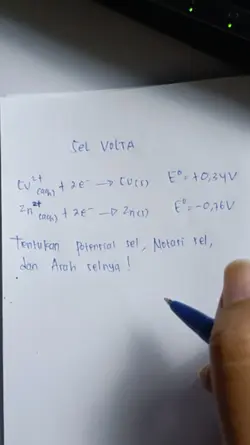 Sel VOLTA
Cu²⁺(aq) + 2e⁻ → Cu(s) E° = +0,34V
Zn²⁺(aq) + 2e⁻ → Zn(s) E° = -0,76V
Tentukan potensial sel, Notasi sel,
dan Arah selnya !